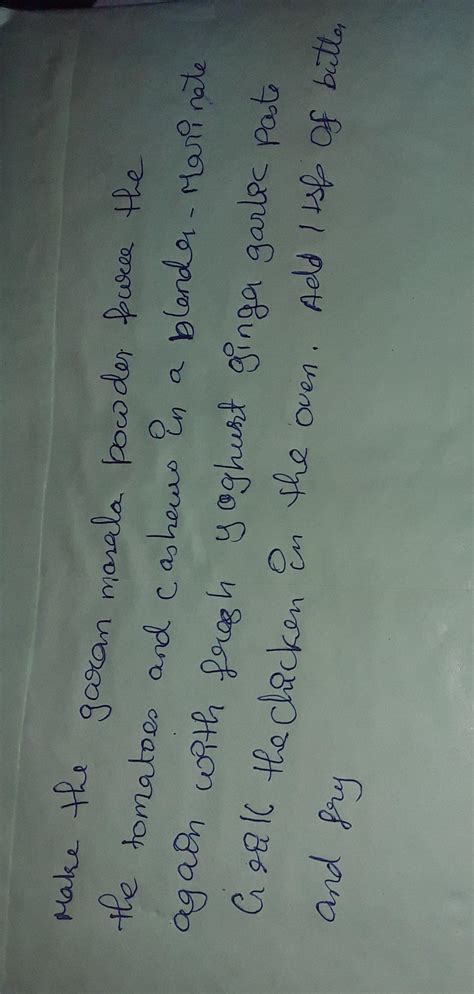 Make the garam masala powder puree the
the tomatoes and cashews in a blender - Marinate
again with fresh yoghurt ginger garlic paste
Grill the chicken in the oven. Add 1 tsp of butter
and fry